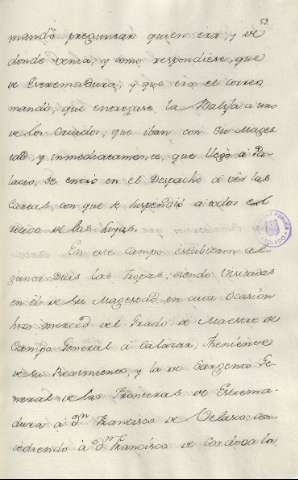 53
mandó preguntar quien era, y de
donde venia, y como respondiese, que
de Extremadura, y que era el correo
mandó, que entregase la Maleta a uno
de los Criados, que iban con Su Mages
tad, y inmediatamente, que llegó a Pa
lacio, se envió en el Despacho a ver las
Cartas, con que se suspendió a todos el
de las suyas.
En este campo estubieron al
gunos dias las tropas, siendo visitadas
en él de Su Magestad, en cuia Ocasion
hizo merced del Grado de Maestre de
Campo General a Salazar, Theniente
de su Regimiento, y la de Sargento Ge
neral de las Fronteras de Extrema
dura a Dn. Francisco de Velasco, con
cediendo a Dn. Francisco de Cordoba los